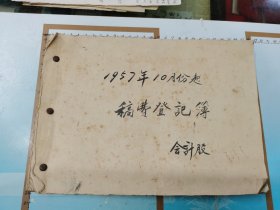 1957年10月份起
稿費登記簿
会計股